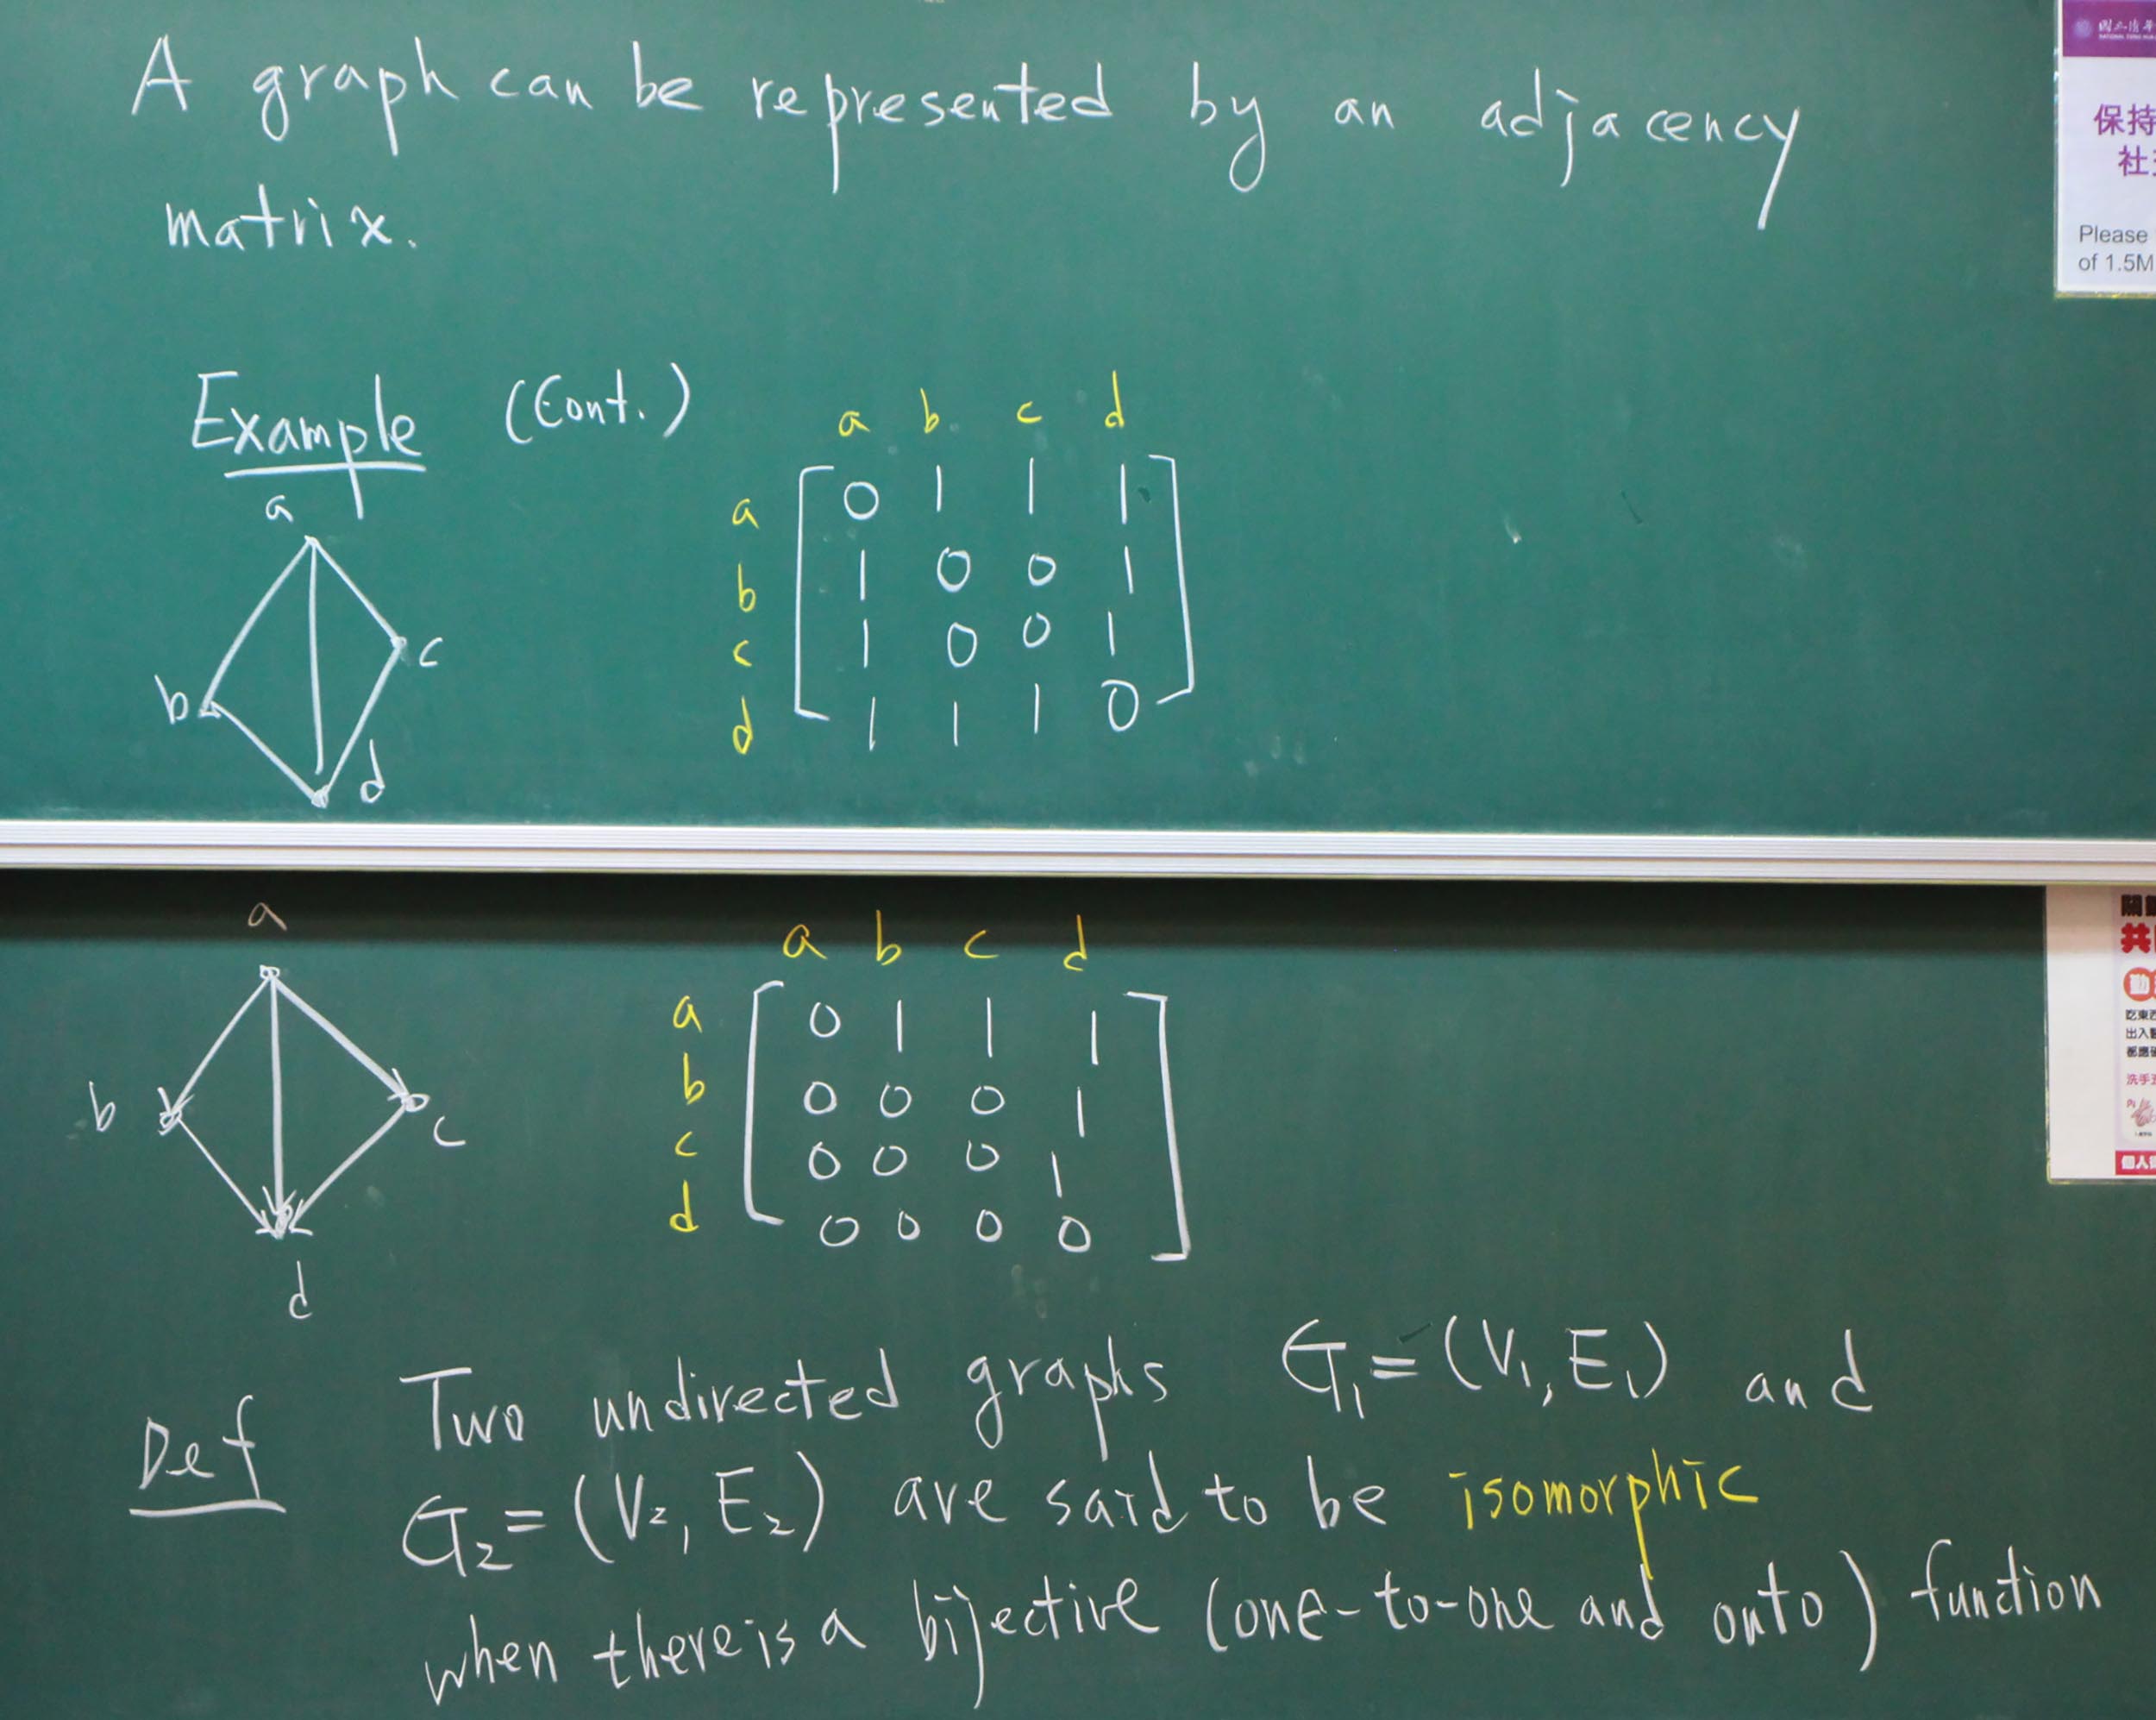 A graph can be represented by an adjacency
matrix.
Example (Cont.)
a
b
c
d
a b c d
a 0 1 1 1
b 1 0 0 1
c 1 0 0 1
d 1 1 1 0
a
b
c
d
a b c d
a 0 1 1 1
b 0 0 0 1
c 0 0 0 1
d 0 0 0 0
Def Two undirected graphs G₁=(V₁,E₁) and
G₂=(V₂,E₂) are said to be isomorphic
when there is a bijective (one-to-one and onto) function
保持
Please
of 1.5M